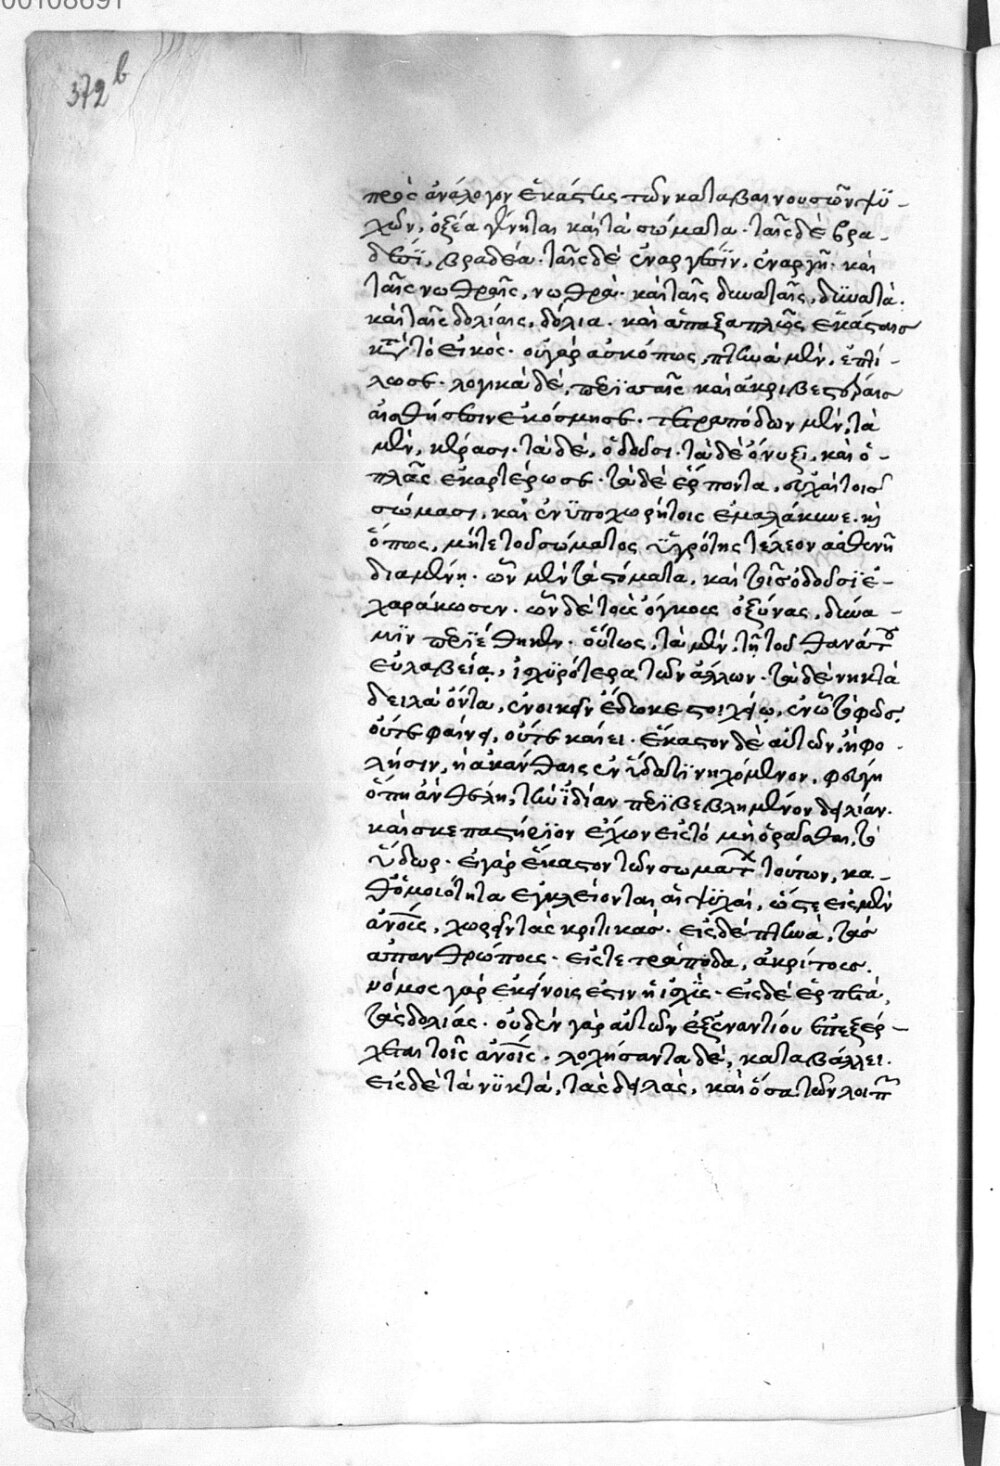 00108691
372 b
πρὸς ἀνάλογον ἑκάστης τῶν καταβαινουσῶν ψυ-
χῶν, ὀξέα γίνηται καὶ τὰ σώματα. ταῖς δὲ βρα-
δέσϊ, βραδέα. ταῖς δὲ ἐναργέσϊν, ἐναργῆ. καὶ
ταῖς νωθραῖς, νωθρά. καὶ ταῖς δυναταῖς, δϋνατά.
καὶ ταῖς δολίαις, δόλια. καὶ ἁπαξαπλῶς ἑκάσταις
κατὰ τὸ εἰκός. οὐ γὰρ ἀσκόπως, πτηνὰ μὲν, ἐπτί-
λωσε. λογικὰ δὲ, περϊσσαῖς καὶ ἀκριβεστέραις
αἰσθήσεσιν ἐκόσμησε. τετραπόδων μὲν, τὰ
μὲν, κέρασι. τὰ δὲ, ὀδοῦσι. τὰ δὲ ὄνυξι, καὶ ὁ-
πλαῖς ἐκαρτέρωσε. τὰ δὲ ἑρποντα, εὐχαίτοις
σώμασι, καὶ ἐνϋποχωρήτοις ἐμαλάκυνε. καὶ
ὅπως, μήτε τοῦ σώματος ὑγρότης τέλεον ἀσθενῆ
διαμένῃ. ὧν μὲν τὰ στόματα, καὶ τοῖς ὀδοῦσϊ ἐ-
χαράκωσεν. ὧν δὲ τοὺς ὄγκους ὀξύνας, δύνα-
μϊν περϊέθηκεν. οὕτως, τὰ μὲν, τῇ τοῦ θανάτου
εὐλαβείᾳ, ἰσχϋρότερα τῶν ἄλλων. τὰ δὲ νηκτὰ
δειλὰ ὄντα, ἐνοικεῖν ἔδωκε στοιχείῳ, ἐν ᾧ τὸ φῶς,
οὔτε φαίνει, οὔτε καίει. ἕκαστον δὲ αὐτῶν, ἢ φο-
λήσιν, ἢ ἀκάνθαις ἐν ὕδατϊ νηχόμενον, φεύγῃ
ὅπη ἂν θέλη, τὴν ἰδίαν περϊβεβλημένον δειλίαν.
καὶ σκεπαστήρϊον ἔχων εἰς τὸ μὴ ὁρᾶσθαι, τὸ
ὕδωρ. εἰ γὰρ ἕκαστον τῶν σωμάτων τούτων, κα-
θ' ὁμοιότητα ἐγκλείονται αἱ ψϋχαί, ὥστε εἰς μὲν
ἀνους, χωρεῖν τὰς κριτικάς. εἰς δὲ πτηνὰ, τὰς
ἀπανθρώπους. εἰς τετράποδα, ἀκρίτους.
νόμος γὰρ ἐκείνοις ἐστιν ἡ ἰσχϋς. εἰς δὲ ἑρπετὰ,
τὰς δολίας. οὐδὲν γὰρ αὐτῶν ἐξεναντίου ἐπεξέρ-
χεται τοῖς ἀνοις. λοχήσαντα δὲ, καταβάλλει.
εἰς δὲ τὰ νϋκτὰ, τὰς δειλὰς. καὶ ὅσα τῶν λοιπῶν